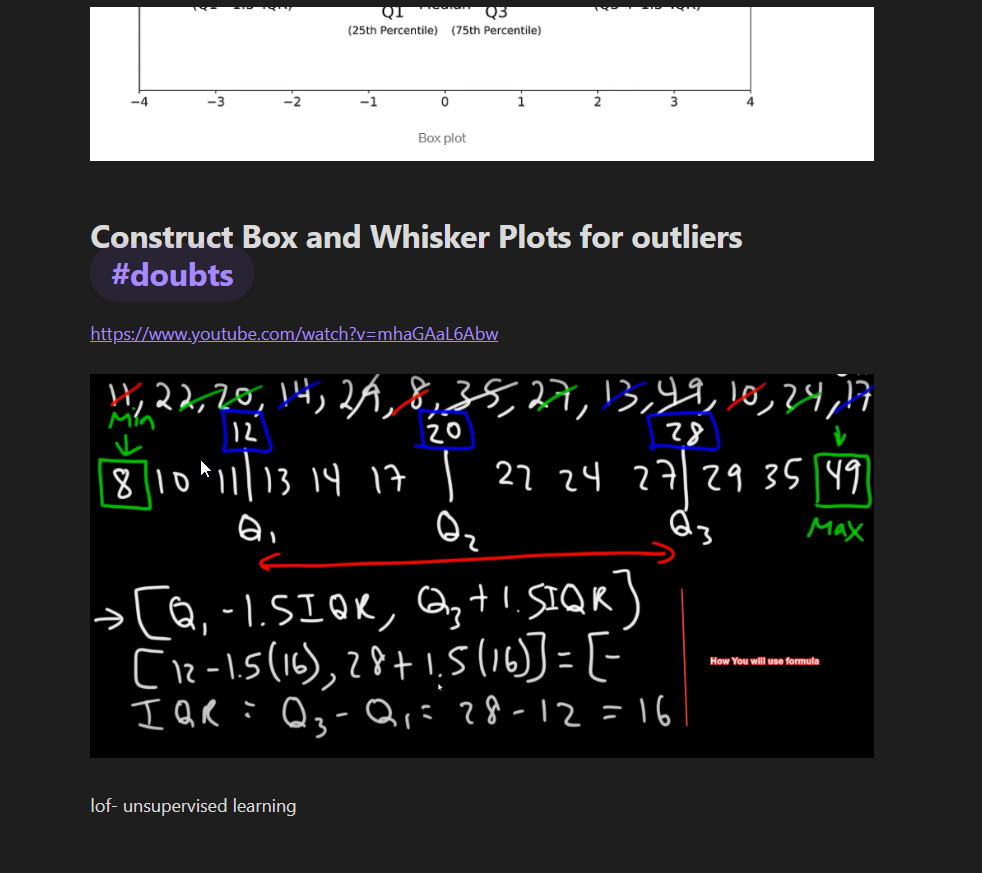 Q1 Median Q3
(25th Percentile) (75th Percentile)
−4 −3 −2 −1 0 1 2 3 4
Box plot
Construct Box and Whisker Plots for outliers
#doubts
https://www.youtube.com/watch?v=mhaGAaL6Abw
11, 22, 20, 14, 29, 8, 35, 27, 13, 49, 10, 24, 17
Min 12 20 28
8 10 11 13 14 17 22 24 27 29 35 49
Q1 Q2 Q3 Max
→ [Q1 - 1.5IQR, Q3 + 1.5IQR]
[12 - 1.5(16), 28 + 1.5(16)] = [-
How You will use formula
IQR = Q3 - Q1 = 28 - 12 = 16
lof- unsupervised learning